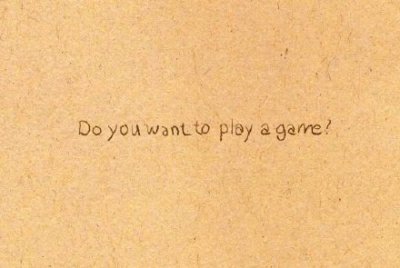 Do you want to play a game?